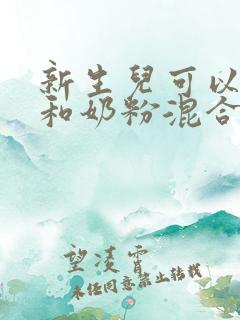 新生兒可以
和奶粉混合
望凌霄
未经同意禁止转载